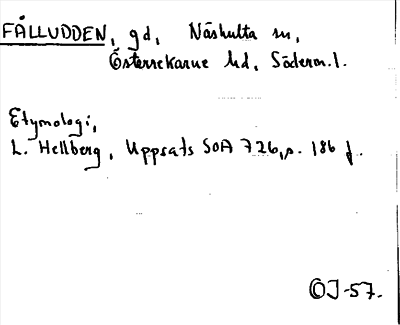 FÅLLUDDEN, gd, Näshulta sn,
Österrekarne hd, Söderm.l.
Etymologi,
L. Hellberg, Uppsats SOA 726, s. 186 f.
OJ-57.